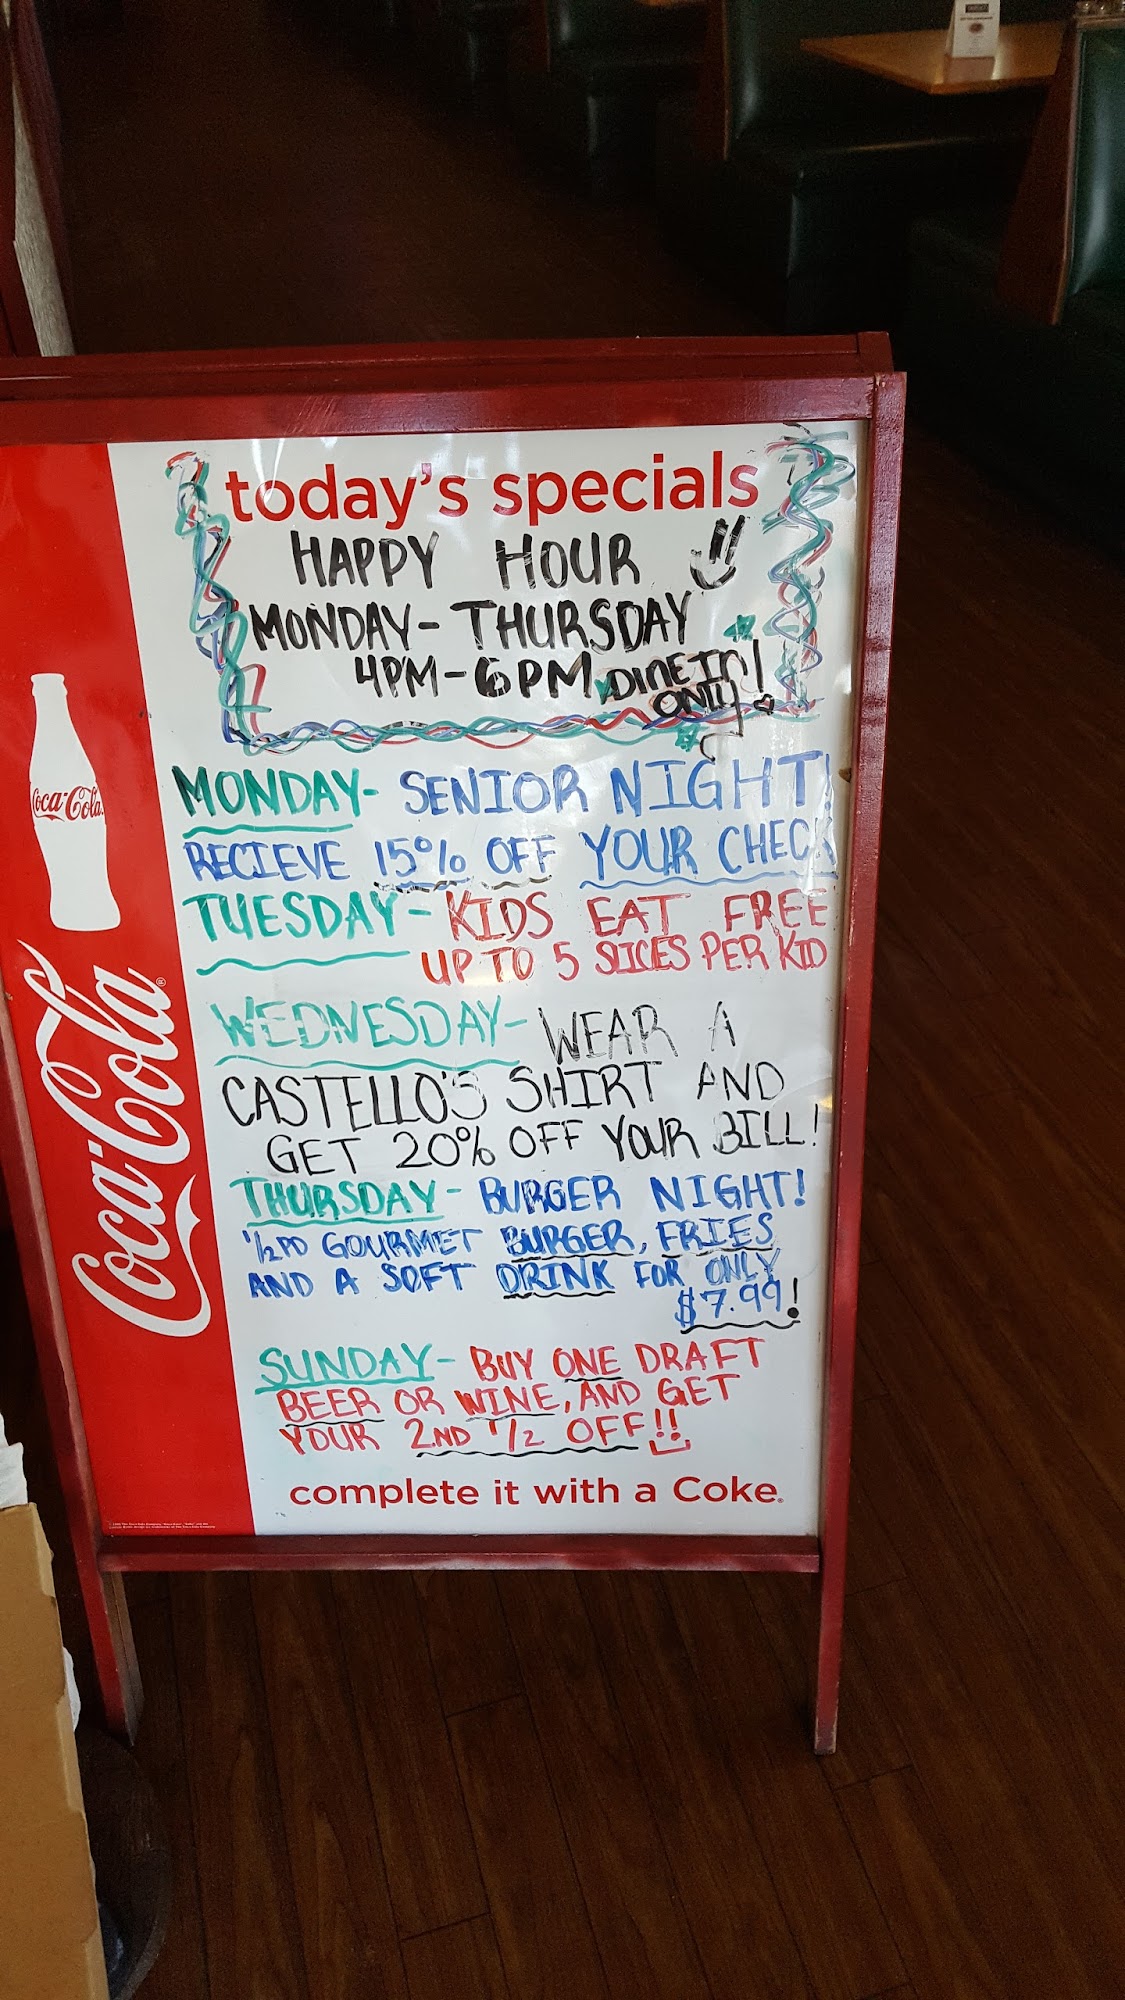 today's specials
HAPPY HOUR
MONDAY - THURSDAY
4PM - 6PM DINE IN
ONLY!
MONDAY - SENIOR NIGHT!
RECIEVE 15% OFF YOUR CHECK
TUESDAY - KIDS EAT FREE
UP TO 5 SLICES PER KID
WEDNESDAY - WEAR A
CASTELLO'S SHIRT AND
GET 20% OFF YOUR BILL!
THURSDAY - BURGER NIGHT!
1/2 PD GOURMET BURGER, FRIES
AND A SOFT DRINK FOR ONLY
$7.99!
SUNDAY - BUY ONE DRAFT
BEER OR WINE, AND GET
YOUR 2ND 1/2 OFF!!
complete it with a Coke.
Coca-Cola
Coca-Cola®